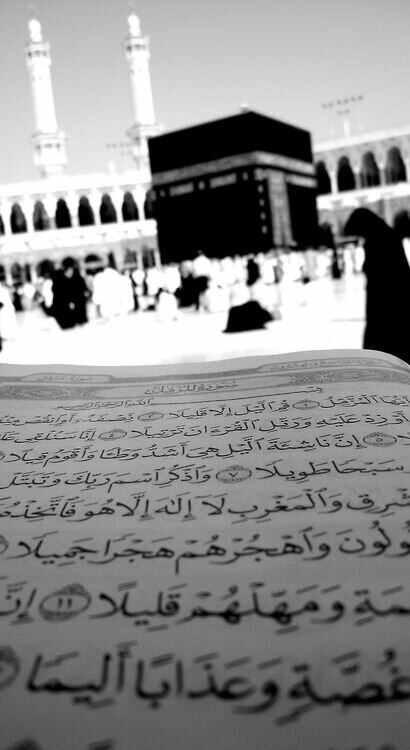 سُورَةُ المُزَّمِّلِ
ٱللَّهِ ٱلرَّحْمَٰنِ ٱلرَّحِيمِ
ٱلْمُزَّمِّلُ ١ قُمِ ٱلَّيْلَ إِلَّا قَلِيلًا ٢ نِّصْفَهُۥٓ أَوِ ٱنقُصْ
أَوْ زِدْ عَلَيْهِ وَرَتِّلِ ٱلْقُرْءَانَ تَرْتِيلًا ٤ إِنَّا سَنُلْقِى
٥ إِنَّ نَاشِئَةَ ٱلَّيْلِ هِىَ أَشَدُّ وَطْـًٔا وَأَقْوَمُ قِيلًا
سَبْحًا طَوِيلًا ٧ وَٱذْكُرِ ٱسْمَ رَبِّكَ وَتَبَتَّلْ
شْرِقِ وَٱلْمَغْرِبِ لَآ إِلَٰهَ إِلَّا هُوَ فَٱتَّخِذْهُ
ولُونَ وَٱهْجُرْهُمْ هَجْرًا جَمِيلًا
مَةِ وَمَهِّلْهُمْ قَلِيلًا ١١ إِنَّ
غُصَّةٍ وَعَذَابًا أَلِيمًا